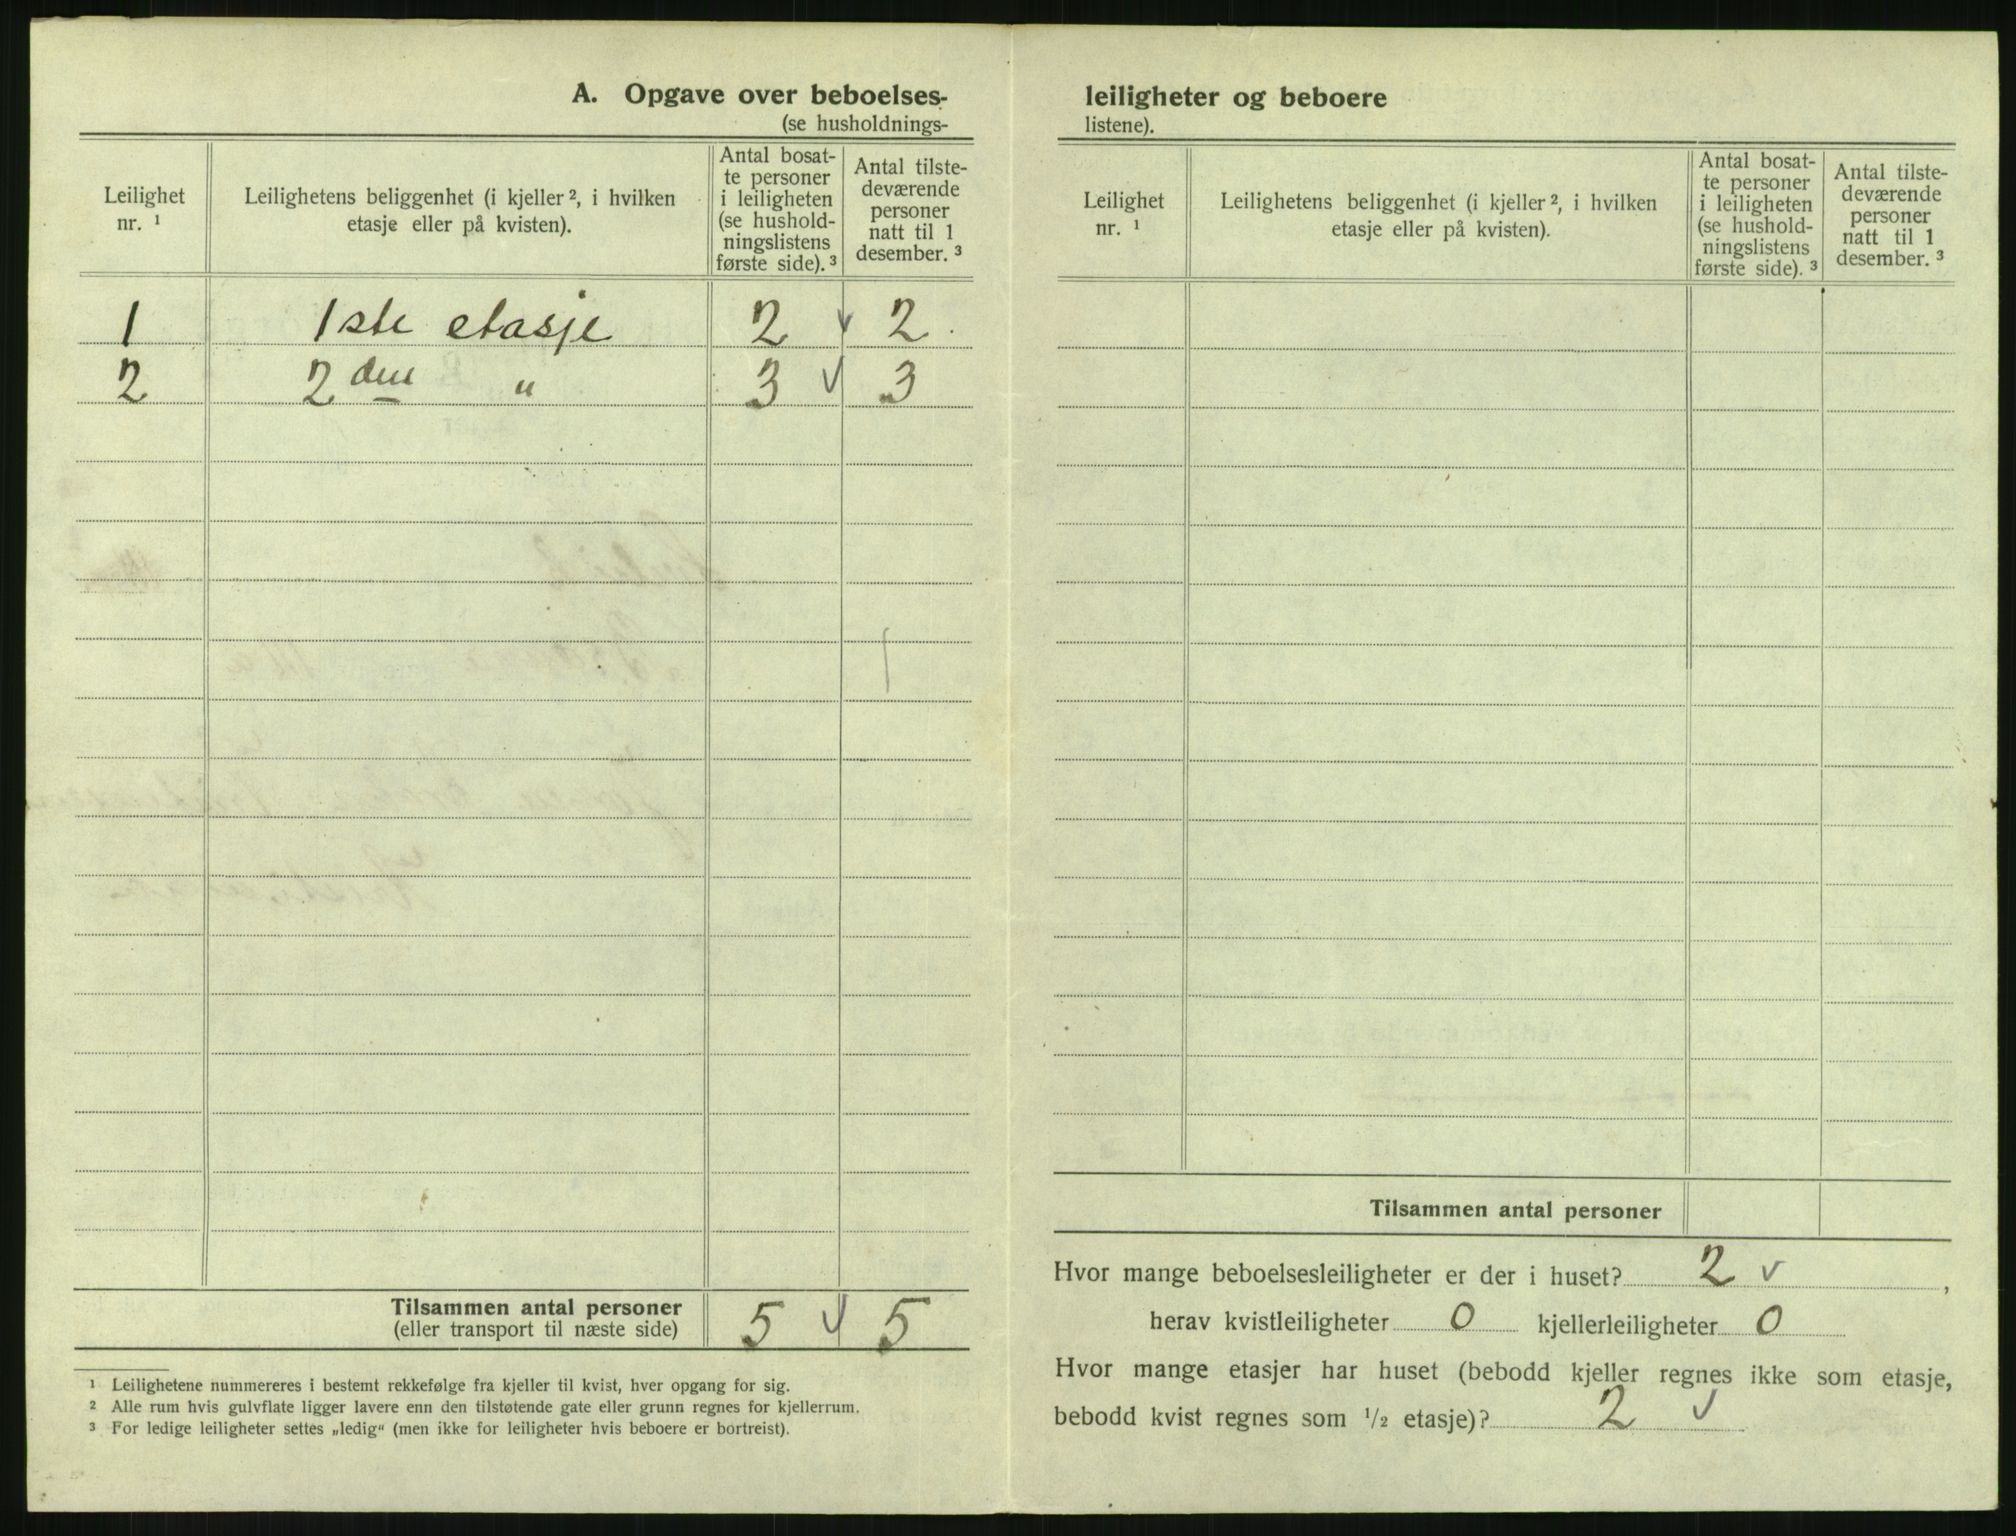 A. Opgave over beboelses-
(se husholdnings-
Leilighet
nr. ¹
Leilighetens beliggenhet (i kjeller ², i hvilken
etasje eller på kvisten).
Antal bosat-
te personer
i leiligheten
(se hushold-
ningslistens
første side). ³
Antal tilste-
deværende
personer
natt til 1
desember. ³
1 1ste etasje 2 v 2
2 2den " 3 v 3
Tilsammen antal personer 5 v 5
(eller transport til næste side)
¹ Leilighetene nummereres i bestemt rekkefølge fra kjeller til kvist, hver opgang for sig.
² Alle rum hvis gulvflate ligger lavere enn den tilstøtende gate eller grunn regnes for kjellerrum.
³ For ledige leiligheter settes „ledig“ (men ikke for leiligheter hvis beboere er bortreist).
leiligheter og beboere
listene).
Leilighet
nr. ¹
Leilighetens beliggenhet (i kjeller ², i hvilken
etasje eller på kvisten).
Antal bosat-
te personer
i leiligheten
(se hushold-
ningslistens
første side). ³
Antal tilste-
deværende
personer
natt til 1
desember. ³
Tilsammen antal personer
Hvor mange beboelsesleiligheter er der i huset? 2 v ,
herav kvistleiligheter 0 kjellerleiligheter 0
Hvor mange etasjer har huset (bebodd kjeller regnes ikke som etasje,
bebodd kvist regnes som ¹/₂ etasje)? 2 v